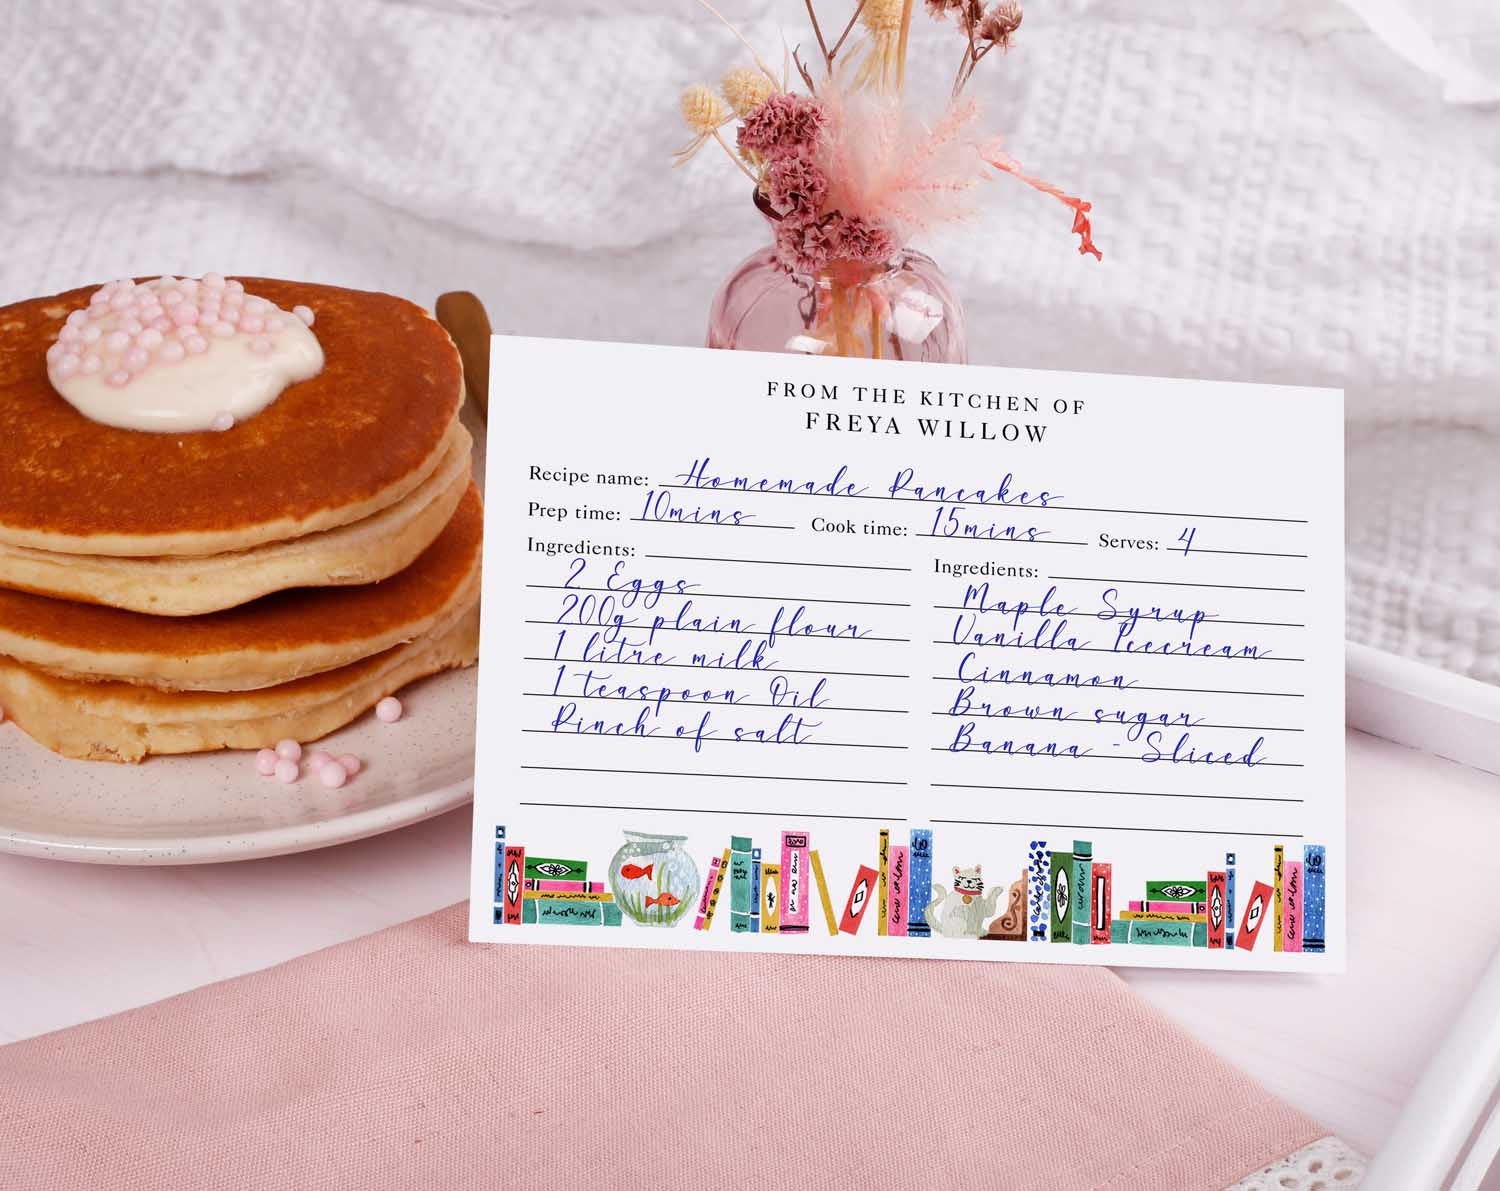 FROM THE KITCHEN OF
FREYA WILLOW
Recipe name: Homemade Pancakes
Prep time: 10mins Cook time: 15mins Serves: 4
Ingredients:
2 Eggs
200g plain flour
1 litre milk
1 teaspoon Oil
Pinch of salt
Ingredients:
Maple Syrup
Vanilla Icecream
Cinnamon
Brown sugar
Banana - Sliced